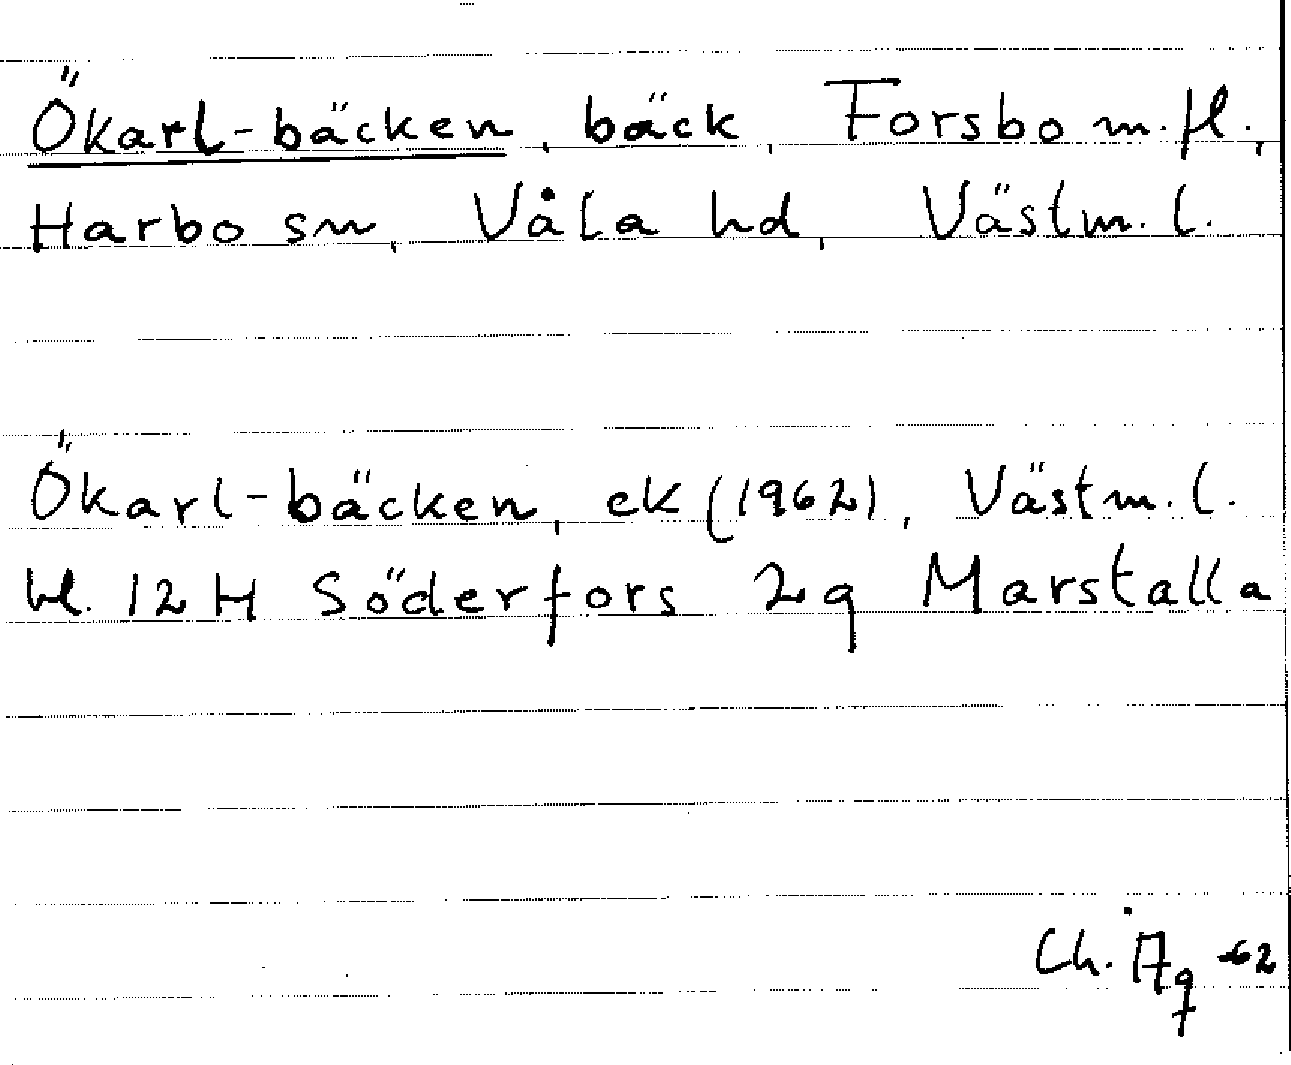 Ökarl-bäcken, bäck, Forsbo m.fl.,
Harbo sn, Våla hd, Västm. l.
Ökarl-bäcken, ek (1962), Västm. l.
bl. 12 H Söderfors 2g Marstalla
Ch. Åg -62